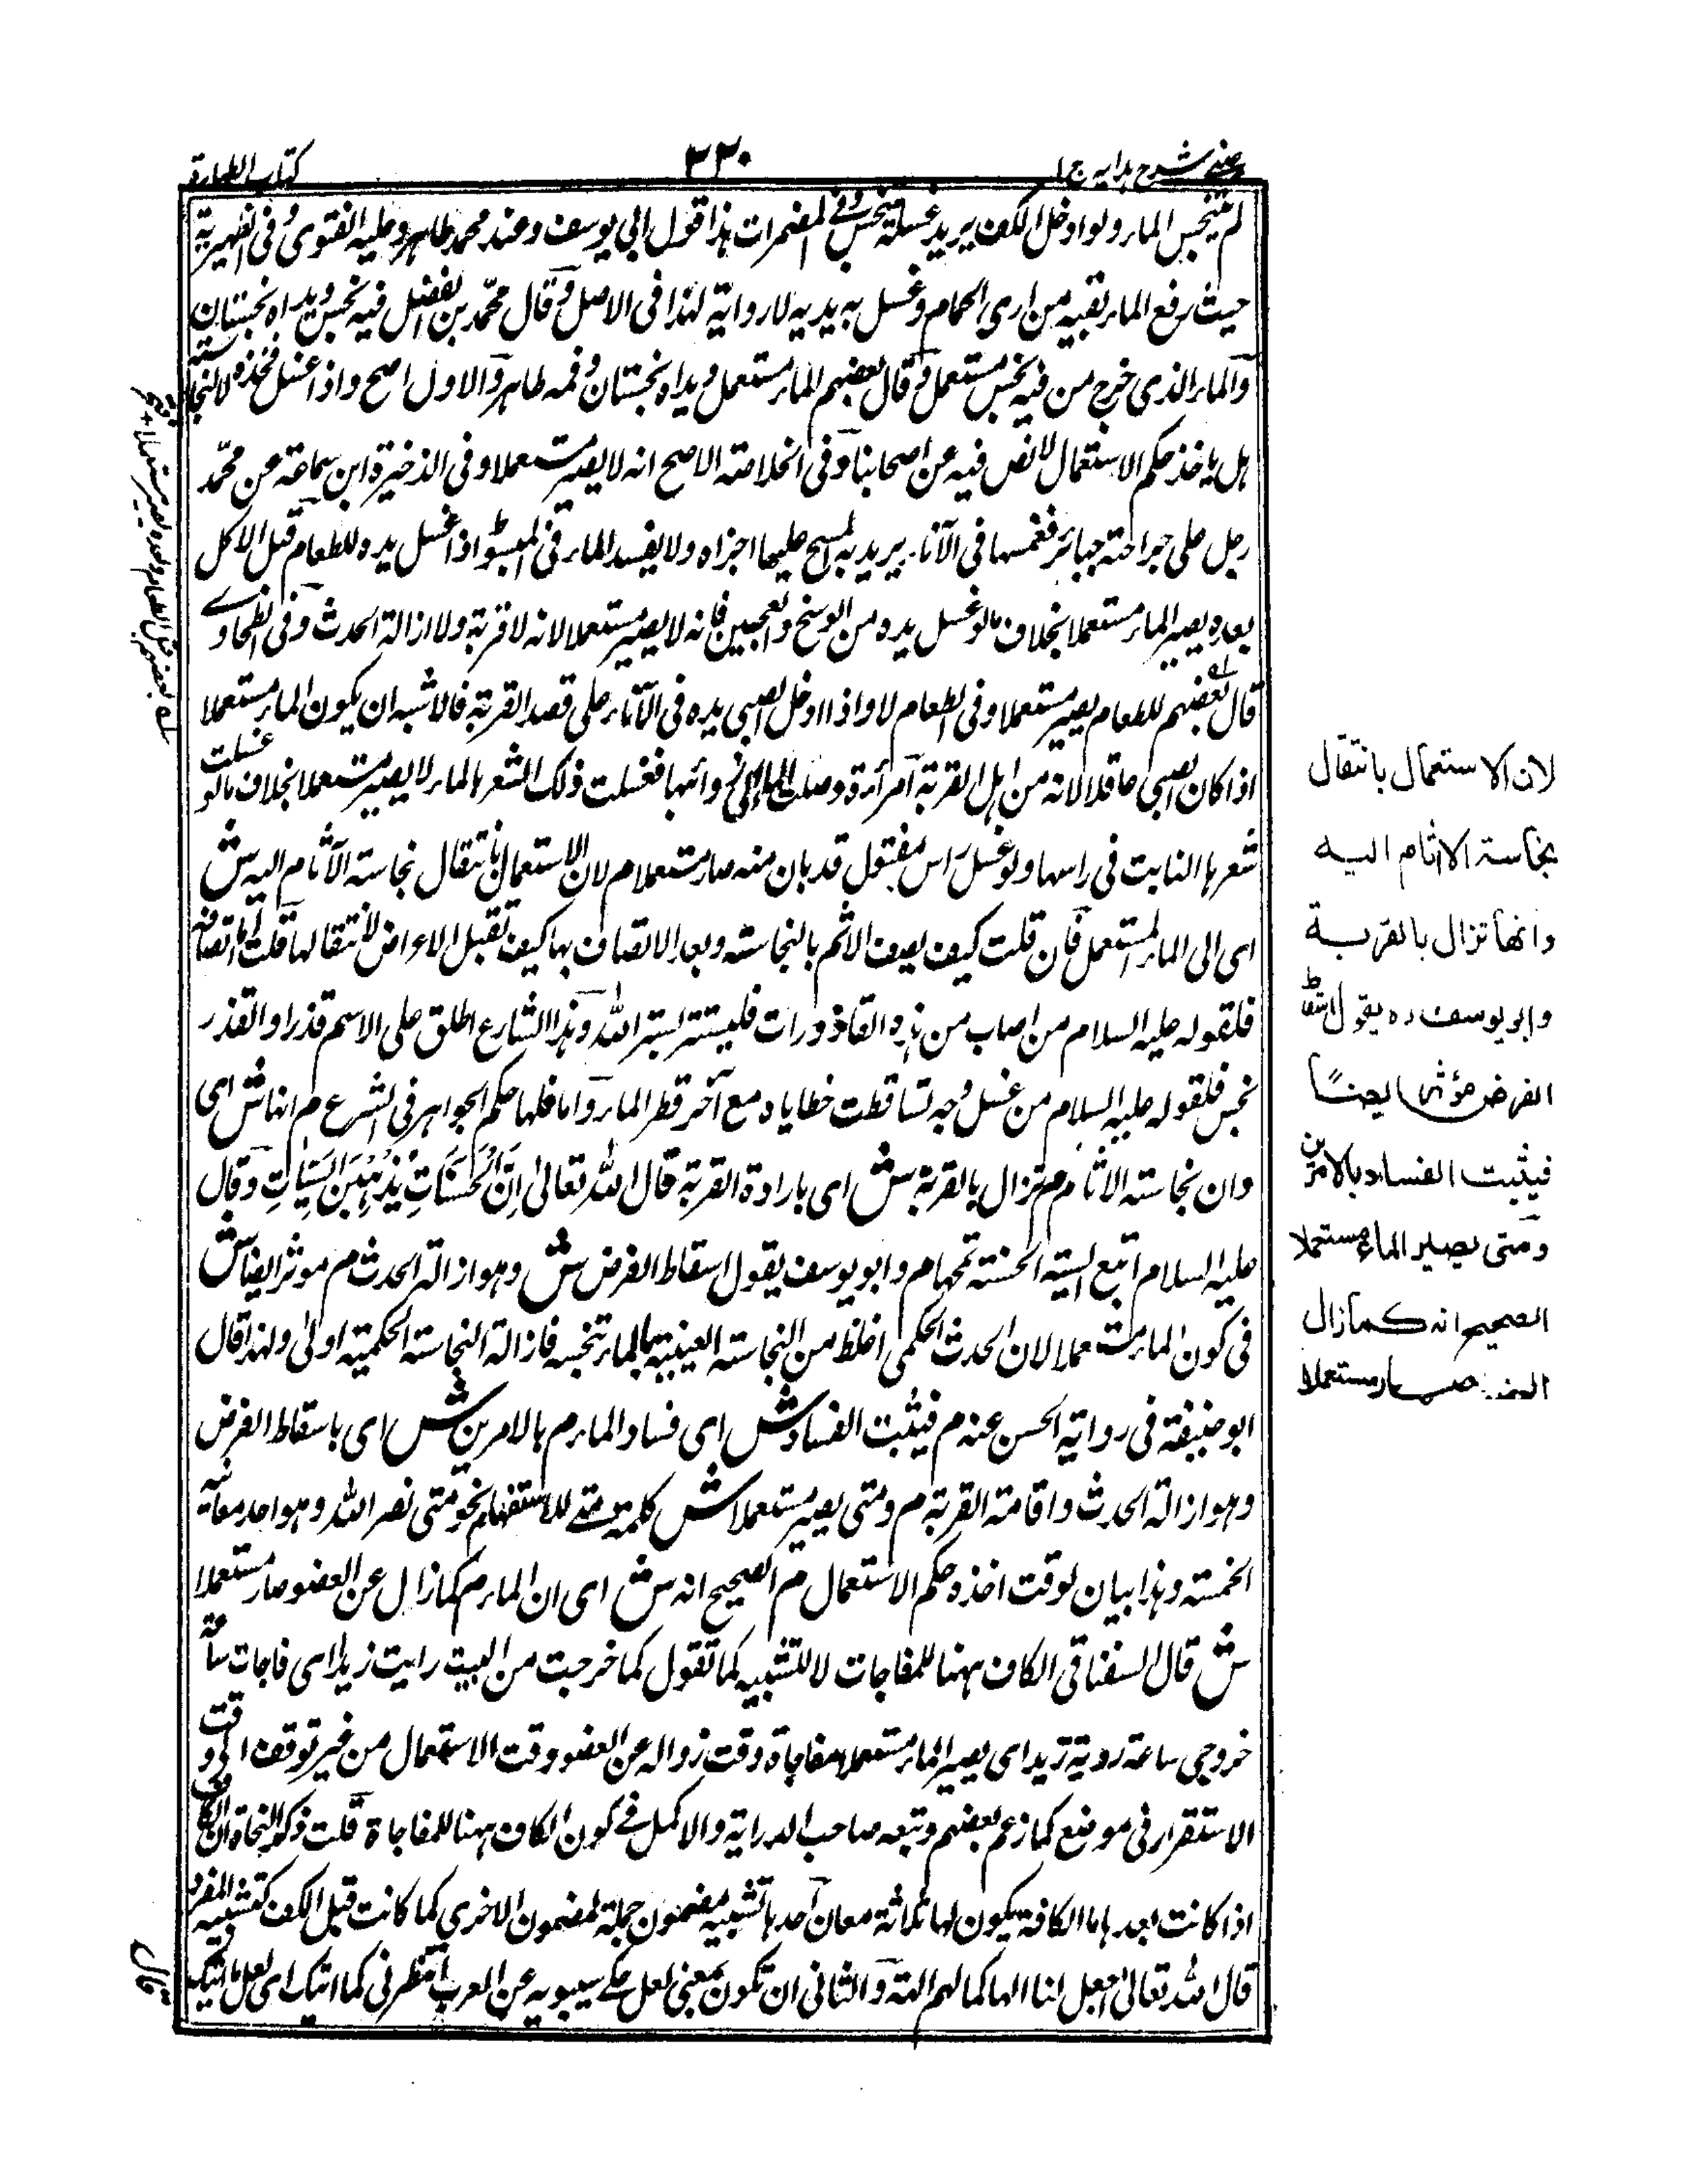 عينى شرح هدايه ج ١
٣٣٠
كتاب الطهارة
لم يتنجس الماء ولو ادخل الكف يريد غسله يتنجس وفى المضمرات هذا قول ابى يوسف وعند محمد طاهر وعليه الفتوى وفى الظهيرية
حيث رفع الماء بفيه من اوى الحمام وغسل به يديه لا رواية لهذا فى الاصل وقال محمد بن الفضل فيه نجس ويداه نجستان
والماء الذى خرج من فيه نجس مستعمل وقال بعضهم الماء مستعمل ويداه نجستان وفمه طاهر والاول اصح واذا غسل فخذه لا لنجاسته
هل ياخذ حكم الاستعمال لا نص فيه عن اصحابنا وفى الخلاصة الاصح انه لا يصير مستعملا وفى الذخيرة ابن سماعة عن محمد
رجل على جراحته جبائر فغمسها فى الاناء يريد به المسح عليها اجزاه ولا يفسد الماء وفى المبسوط اذا غسل يده للطعام قبل الاكل
بعده يصير الماء مستعملا بخلاف ما لو غسل يده من الوسخ والعجين فانه لا يصير مستعملا لانه لا قربة ولا ازالة الحدث وفى الطحاوى
قال بعضهم للطعام يصير مستعملا وفى الطعام لا واذا ادخل الصبى يده فى الاناء على قصد القربة فالاشبه ان يكون الماء مستعملا
اذا كان الصبى عاقلا لانه من اهل القربة امرأة وصلت ذوائبها فغسلت ذلك الشعر بالماء لا يصير مستعملا بخلاف ما لو غسلت
شعرها النابت فى راسها ولو غسل راس مقتول قد بان منه صار مستعملا م لان الاستعمال بانتقال نجاسة الآثام اليه ش
اى الى الماء المستعمل فان قلت كيف يوصف الاثم بالنجاسة وبعد الاتصاف بها كيف تقبل الاعراض الانتقال قلت اما اتصافه
فلقوله عليه السلام من اصاب من هذه القاذورات فليستتر بستر الله وهذا الشارع اطلق على الاسم قذرا والقذر
نجس فلقوله عليه السلام من غسل وجهه تساقطت خطاياه مع آخر قطر الماء واما فلها حكم الجواهر فى الشرع م انها ش اى
وان نجاسة الاثام م تزال بالقربة ش اى بارادة القربة قال الله تعالى اِنَّ الْحَسَنَاتِ يُذْهِبْنَ السَّيِّاٰتِ وقال
عليه السلام اتبع السيئة الحسنة تمحها م وابو يوسف يقول اسقاط الفرض ش وهو ازالة الحدث م موثر ايضا ش
فى كون الماء مستعملا لان الحدث الحكمى اغلظ من النجاسة العينية بالماء تنجسه فازالة النجاسة الحكمية اولى ولهذا قال
ابو حنيفة فى رواية الحسن عنه م فيثبت الفساد ش اى فساد الماء م بالامرين ش اى باسقاط الفرض
وهو ازالة الحدث واقامة القربة م ومتى يصير مستعملا ش كلمة متى للاستفهام نحو متى نصر الله وهو احد معانيه
الخمسة وهذا بيان لوقت اخذه حكم الاستعمال م الصحيح انه ش اى ان الماء م كما زال عن العضو صار مستعملا
ش قال السغناقى الكاف ههنا للمفاجات لا للتشبيه كما تقول كما خرجت من البيت رايت زيدا اى فاجات ساعة
خروجى ساعة روية زيد اى يصير الماء مستعملا مفاجاة وقت زواله عن العضو وقت الاستعمال من غير توقف الى وقت
الاستقرار فى موضع كما زعم بعضهم وتبعه صاحب الدراية والاكمل فى كون الكاف ههنا للمفاجاة قلت ذكر النحاة ان الكاف
اذا كانت بعدها ما الكافة يكون لها ثلاثة معان احدها تشبيه مضمون جملة لمضمون الاخرى كما كانت قبل الكف كتشبيه المفرد
قال الله تعالى اجعل لنا الها كما لهم الهة والثانى ان تكون بمعنى لعل حكى سيبويه عن العرب انتظرنى كما اتيك اى لعل ما اتيك
لان الاستعمال بانتقال
نجاسة الاثام اليه
وانها تزال بالقربة
وابو يوسف ره يقول اسقاط
الفرض مؤثر ايضًا
فيثبت الفساد بالامرين
ومتى يصير الماء مستعملا
الصحيح انه كما زال
العضو صار مستعملا